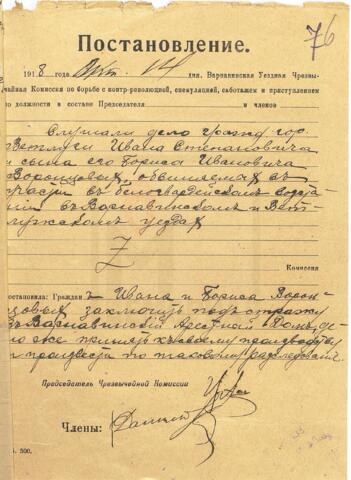 76
Постановленіе.
1918 года Окт. 14 дня. Варнавинская Уѣздная Чрезвы-
чайная Комиссія по борьбѣ с контр-революціей, спекуляціей, саботажем и приступлением
по должности в составе Предсѣдателя и членов
Слушали дело гражд. гор.
Ветлуги Ивана Степановича
и сына его Бориса Ивановича
Воронцовых, обвиняемых въ
въ белогвардейском
въ Варнавинскомъ и Вет-
лужскомъ уездах
Z
Комиссія
постановила: Граждан Ивана и Бориса Ворон-
цовых заключить подъ стражу
въ Варнавинский Арестный Домъ, де-
ло же принять къ производству
и произвести по таковому разследование.
Предсѣдатель Чрезвычайной Комиссіи
Члены:
. 500.